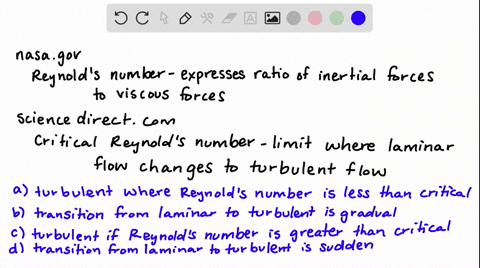 nasa.gov
Reynold's number - expresses ratio of inertial forces
to viscous forces
Science direct. com
Critical Reynold's number - limit where laminar
flow changes to turbulent flow
a) turbulent where Reynold's number is less than critical
b) transition from laminar to turbulent is gradual
c) turbulent if Reynold's number is greater than critical
d) transition from laminar to turbulent is sudden